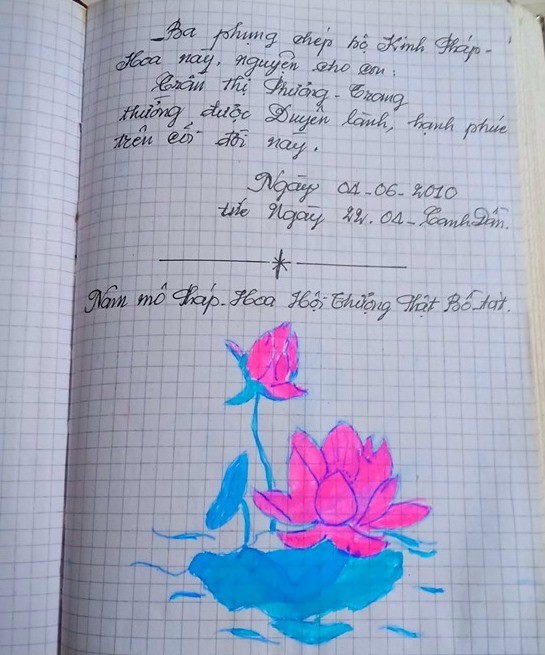 _Ba phụng chép bộ Kinh Pháp-
Hoa này, nguyện cho con:
Trần Thị Phưởng-Trang
thường được Duyên lành, hạnh phúc
trên cõi đời này.
Ngày 04-06-2010
tức Ngày 22.04-Canh Dần.
Nam mô Pháp-Hoa Hội Thượng Phật Bồ-tát.